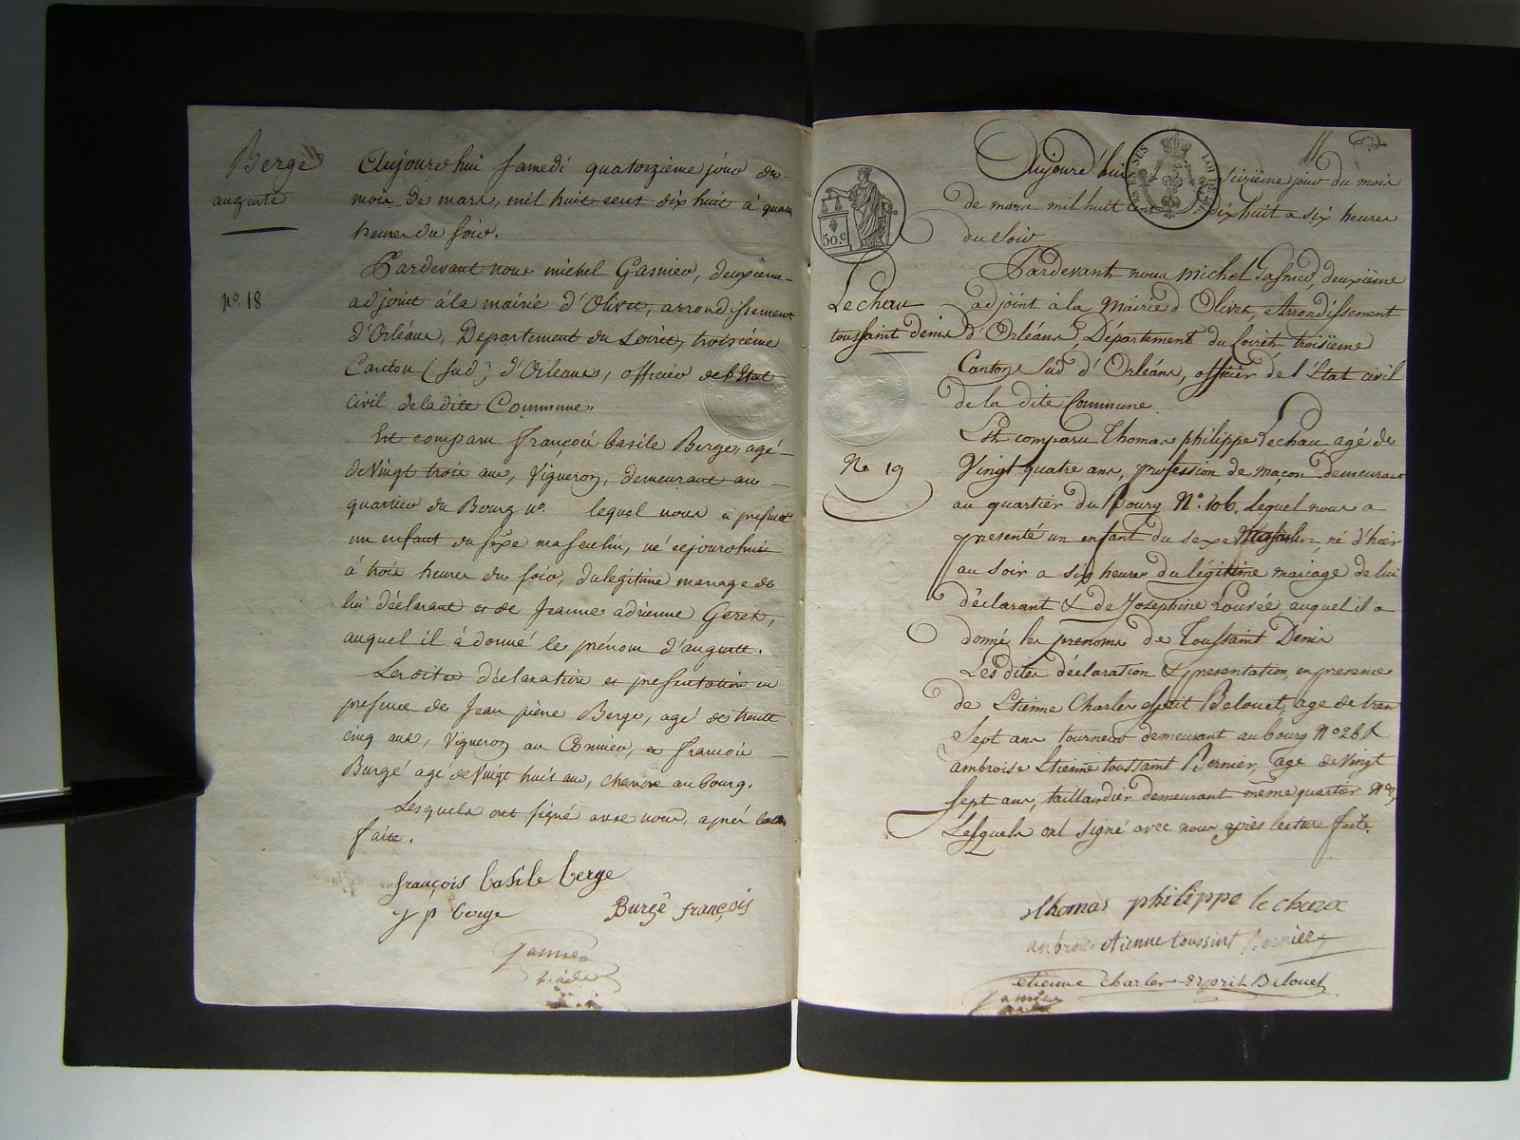 Berge
auguste
nº 18
Aujourd'hui samedi quatorzième jour du
mois de mars, mil huit cent dix huit à quatre
heures du soir.
Pardevant nous michel Gasnier, deuxième
adjoint à la mairie d'Olivet, arrondissement
d'Orléans, Département du Loiret, troisième
Canton (sud) d'Orléans, officier de l'Etat
civil de la dite Commune
Est comparu françois basile Berge, agé
de Vingt trois ans, Vigneron, demeurant au
quartier du Bourg nº. lequel nous a présenté
un enfant du sexe masculin, né cejourdhui
à trois heures du soir, du légitime mariage de
lui déclarant et de Jeanne adrienne Geret,
auquel il à donné le prénom d'auguste.
Lesdites déclaration et presentation en
presence de Jean pierre Berge, agé de trente
cinq ans, Vigneron au et françois
Burgé agé de Vingt huit ans, au bourg.
Lesquels ont signé avec nous, après lecture
faite.
françois basile berge
j p berge Burgé françois
Gasnier
11
Aujourd'hui seizième jour du mois
de mars mil huit cent dix huit a six heures
du soir
50 c
Pardevant nous Michel Gasnier, deuxième
Lechau
adjoint à la Mairie d'Olivet, Arrondissement
toussaint denis
d'Orléans, Département du Loiret troisième
Canton Sud d'Orléans, officier de l'Etat civil
de la dite Commune.
Est comparu Thomas philippe Lechau agé de
No 19
Vingt quatre ans, profession de maçon demeurant
au quartier du Bourg Nº. 106. Lequel nous a
presenté un enfant du sexe Masculin, né d'hier
au soir a six heures du légitime mariage de lui
déclarant & de Josephine Lourée, auquel il a
donné les prenoms de Toussaint Denis
Les dites déclaration & presentation en presence
de Etienne Charles esprit Belouet, age de tren
sept ans tourneur demeurant au bourg Nº 26 &
ambroise Etienne toussaint Bernier, age de Vingt
sept ans, taillandier demeurant même quartier
Lesquels ont signé avec nous après lecture faite.
thomas philippe lechau
ambroise etienne toussint
etienne Charles esprit Belouet
Gasnier